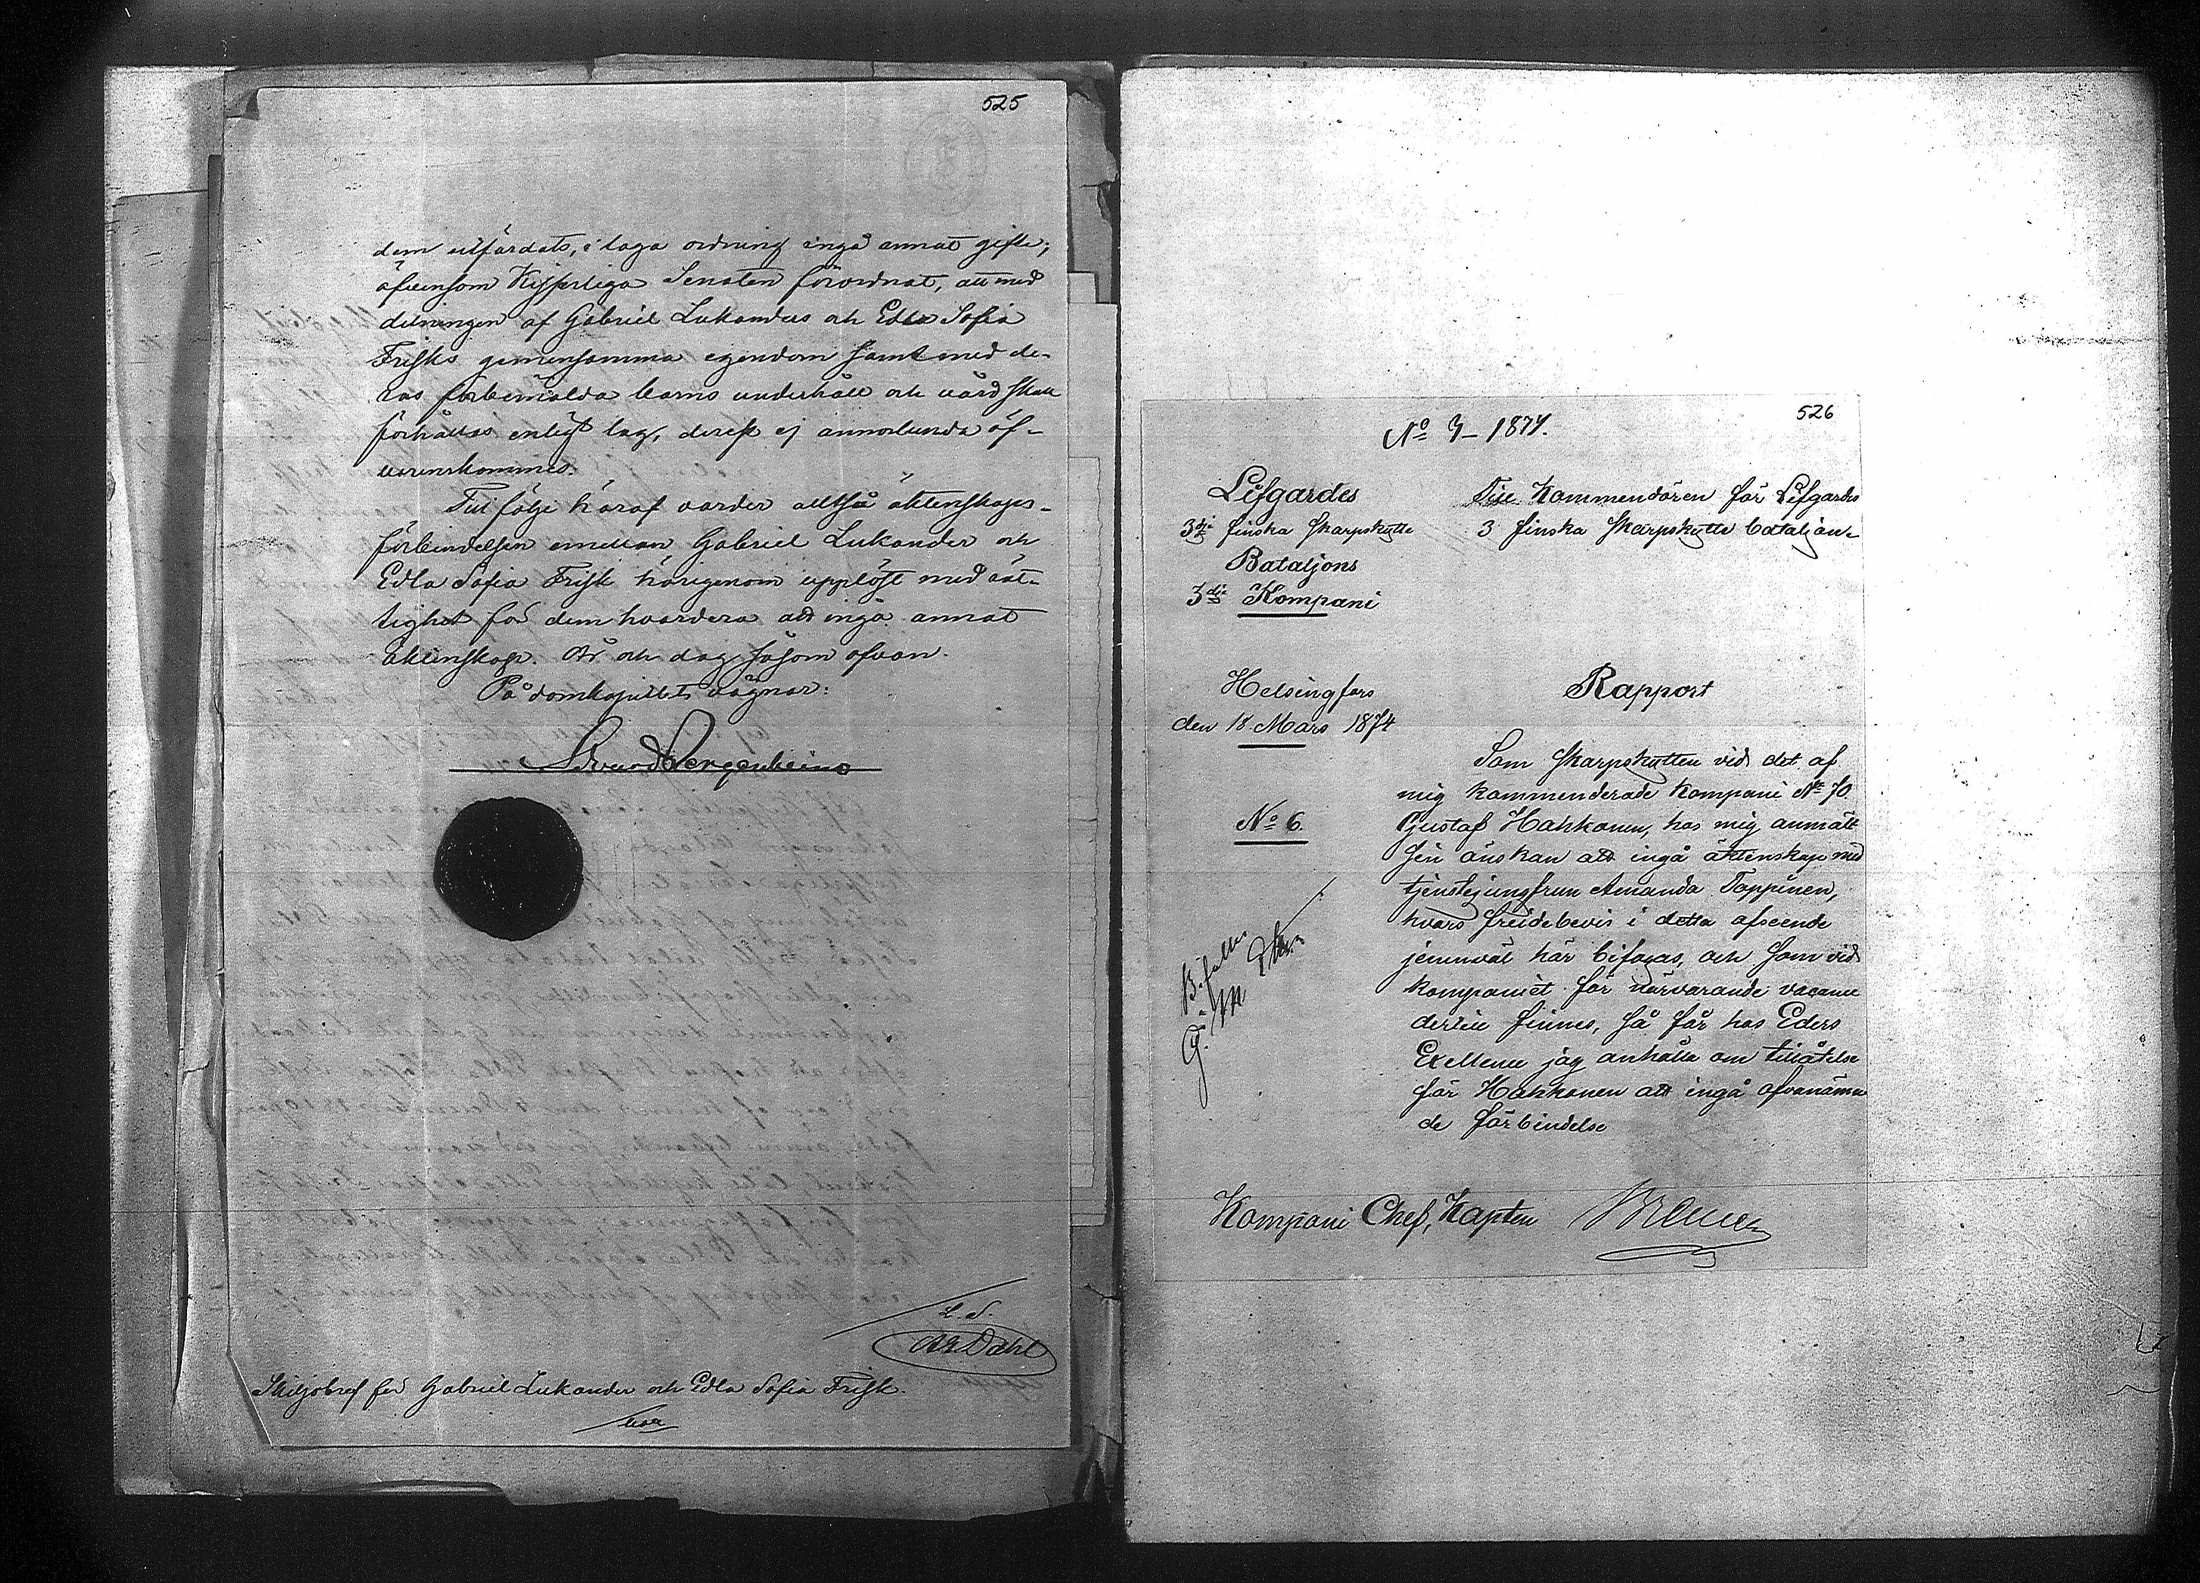 525
dem utfärdats, i laga ordning ingå annat gifte;
äfvensom Kejserliga Senaten förordnat, att med
delningen af Gabriel Lukanders och Edla Sofia
Frisks gemensamma egendom samt med de-
ras förbemälda barns underhåll och vård skall
förhållas enligt lag, derest ej annorlunda öf-
verenskommes.
Till följe häraf varder alltså äktenskaps-
förbindelsen emellan Gabriel Lukander och
Edla Sofia Frisk härigenom upplöst med rät-
tighet för dem hvardera att ingå annat
äktenskap. År och dag såsom ofvan.
På domkapitlets vägnar:
Edvard Bergenheim
L. S.
Dahl
Skiljobref för Gabriel Lukander och Edla Sofia Frisk.
526
No 3 - 1874.
Lifgardes
3dje finska Skarpskytte
Bataljons
3dje Kompani
Till Kommendören för Lifgardes
3 finska Skarpskytte bataljon
Helsingfors
den 18 Mars 1874
No 6.
Rapport
Som Skarpskytten vid det af
mig kommenderade kompani No 70
Gustaf Hakkonen, hos mig anmält
sin önskan att ingå äktenskap med
tjenstejungfrun Amanda Toppinen,
hvars frejdebevis i detta afseende
jemnväl här bifogas, och som vid
kompaniet för närvarande vacance
dertill finnes, så får hos Eders
Exellence jag anhålla om tillåtelse
för Hakkonen att ingå ofvannämn
de förbindelse
Bifalles
Kompani Chef, Kapten